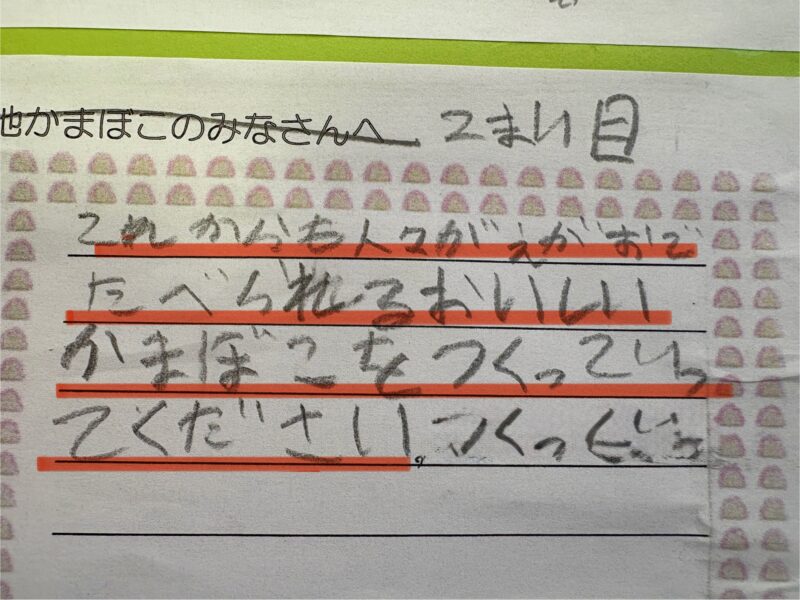 池かまぼこのみなさんへ 2まい目
これからも人々がえがおで
たべられるおいしい
かまぼこをつくっていっ
てください。つくっていっ